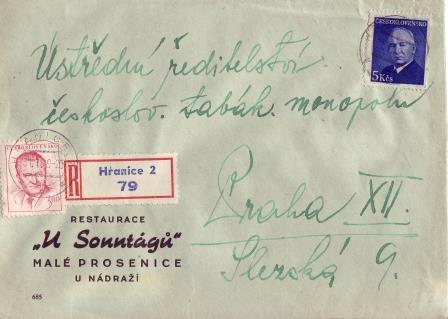 Ústřední ředitelství
českoslov. tabák. monopolu
Praha XII.
Slezská 9.
ČESKOSLOVENSKO
5 Kčs
ČESKOSLOVENSKO
R
Hranice 2
79
RESTAURACE
„U Sonntágů"
MALÉ PROSENICE
U NÁDRAŽÍ
685